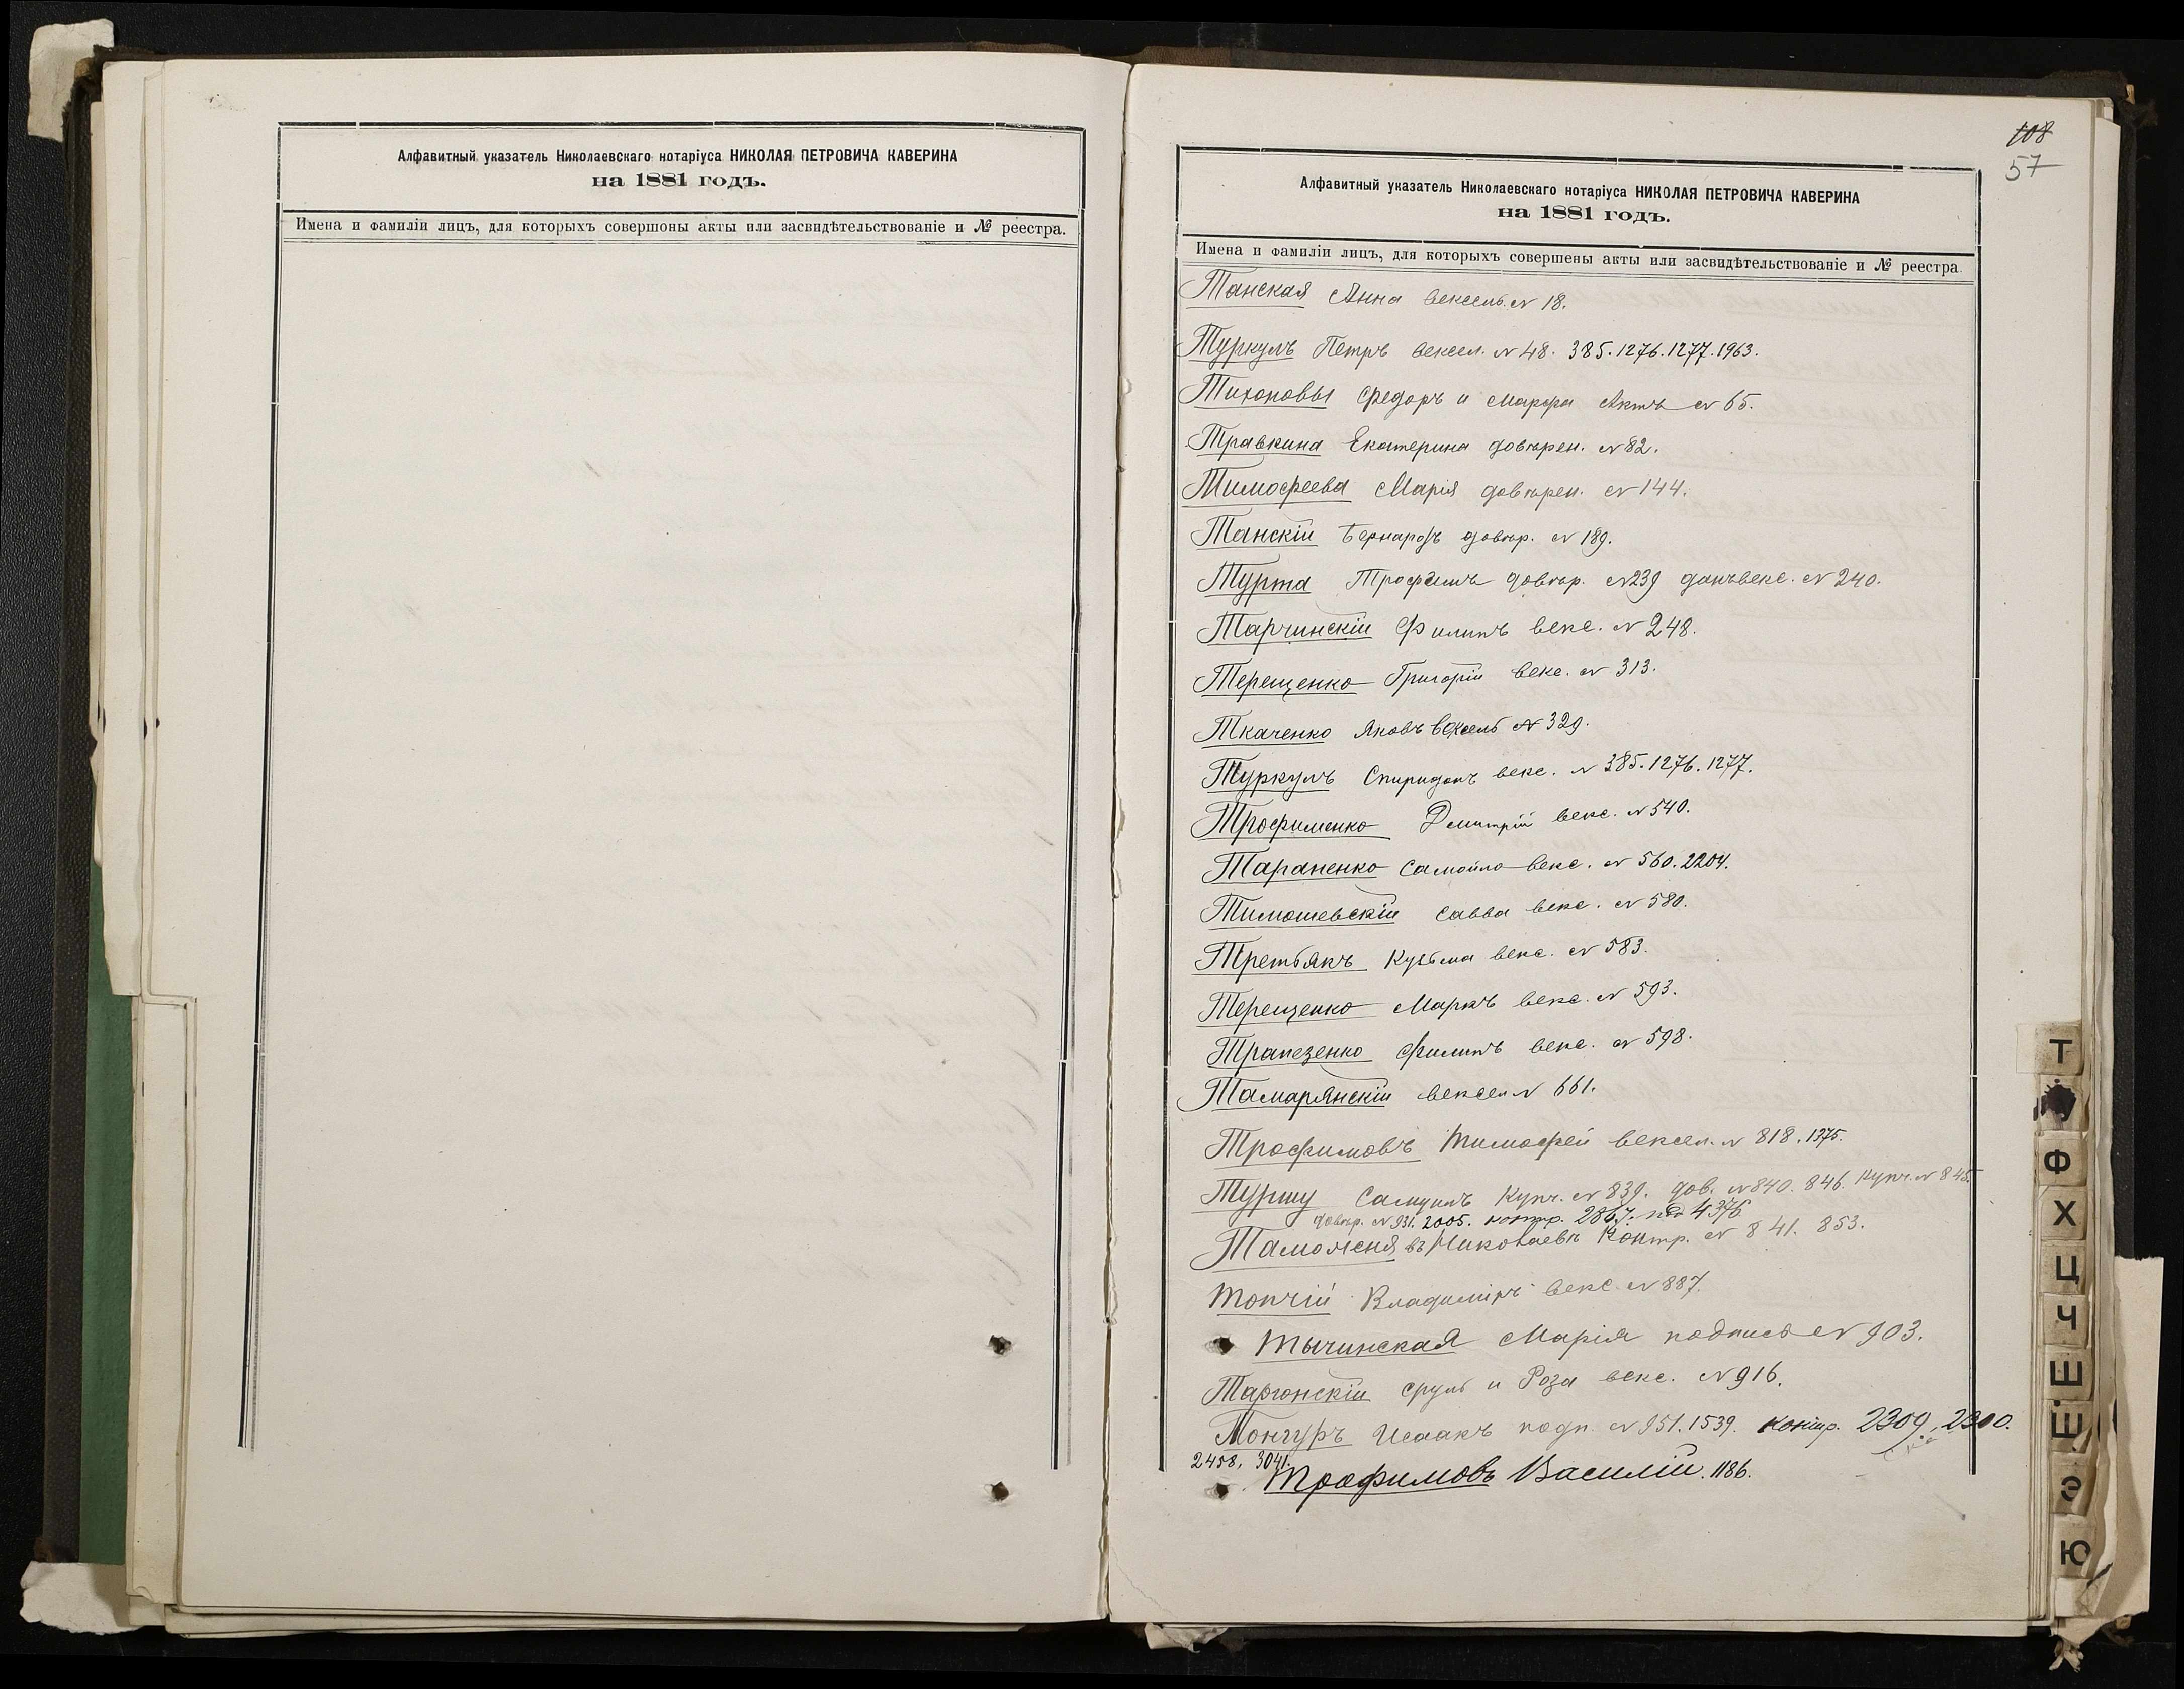 Алфавитный указатель Николаевскаго нотаріуса НИКОЛАЯ ПЕТРОВИЧА КАВЕРИНА
на 1881 годъ.
Имена и фамиліи лицъ, для которыхъ совершоны акты или засвидѣтельствованіе и № реестра.
108
57
Алфавитный указатель Николаевскаго нотаріуса НИКОЛАЯ ПЕТРОВИЧА КАВЕРИНА
на 1881 годъ.
Имена и фамиліи лицъ, для которыхъ совершены акты или засвидѣтельствованіе и № реестра.
Танская Анна вексель. № 18.
Туркулъ Петръ вексел. № 48. 385. 1276. 1277. 1963.
Тихоновы Федоръ и Марфа Актъ № 65.
Травкина Екатерина довѣрен. № 82.
Тимофеева Марія довѣрен. № 144.
Танскій Бернардъ довѣр. № 189.
Турта Трофимъ довѣр. № 239 № 240.
Тарчинскій Филипъ векс. № 248.
Терещенко Григорій векс. № 313.
Ткаченко Яковъ вексель № 329.
Туркулъ Спиридонъ векс. № 385. 1276. 1277.
Трофименко Дмитрій векс. № 540.
Тараненко Самойло векс. № 560. 2204.
Тимошевскій Савва векс. № 580.
Третьякъ Кузьма векс. № 583.
Терещенко Маркъ векс. № 593.
Трапезенко Филипъ векс. № 598.
Тамарянскій вексел № 661.
Трофимовъ Тимофей вексел. № 818. 1375.
Туршу Самуилъ Купч. № 839. дов. № 840. 846. Купч. № 845
довѣр. № 931. 2005. контр. 2867. 4376
Таможеня въ Николаевѣ Контр. № 841. 853.
Топчій Владиміръ векс. № 887.
Тычинская Марія подпись № 903.
Таргонскій Сруль и Роза векс. № 916.
Тонгуръ Исаакъ подп. № 951. 1539. контр. 2309. 2300.
2458. 3041.
Трофимовъ Василій. 1186.
Т
Ф
Х
Ц
Ч
Ш
Щ
Э
Ю